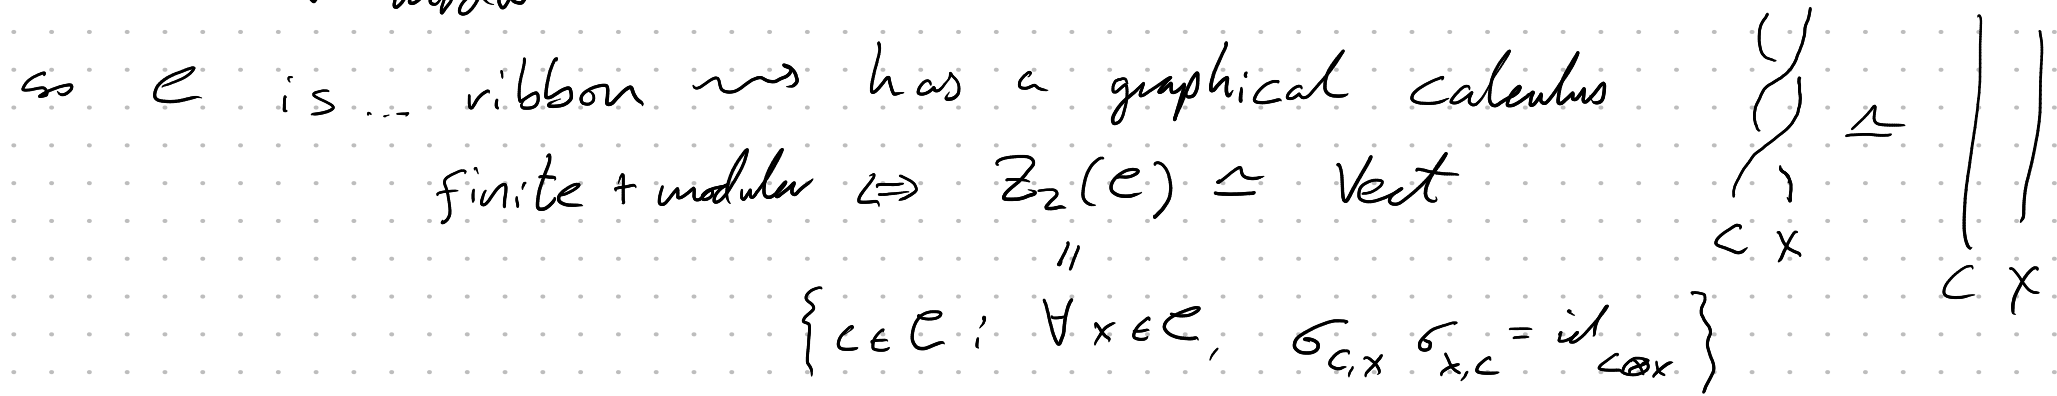 so C is ... ribbon ⇝ has a graphical calculus
finite + modular ⇔ Z₂(C) ≃ Vect
≃
C X
C X
=
{c ∈ C : ∀ x ∈ C, σ_{c,x} σ_{x,c} = id_{c⊗x}}